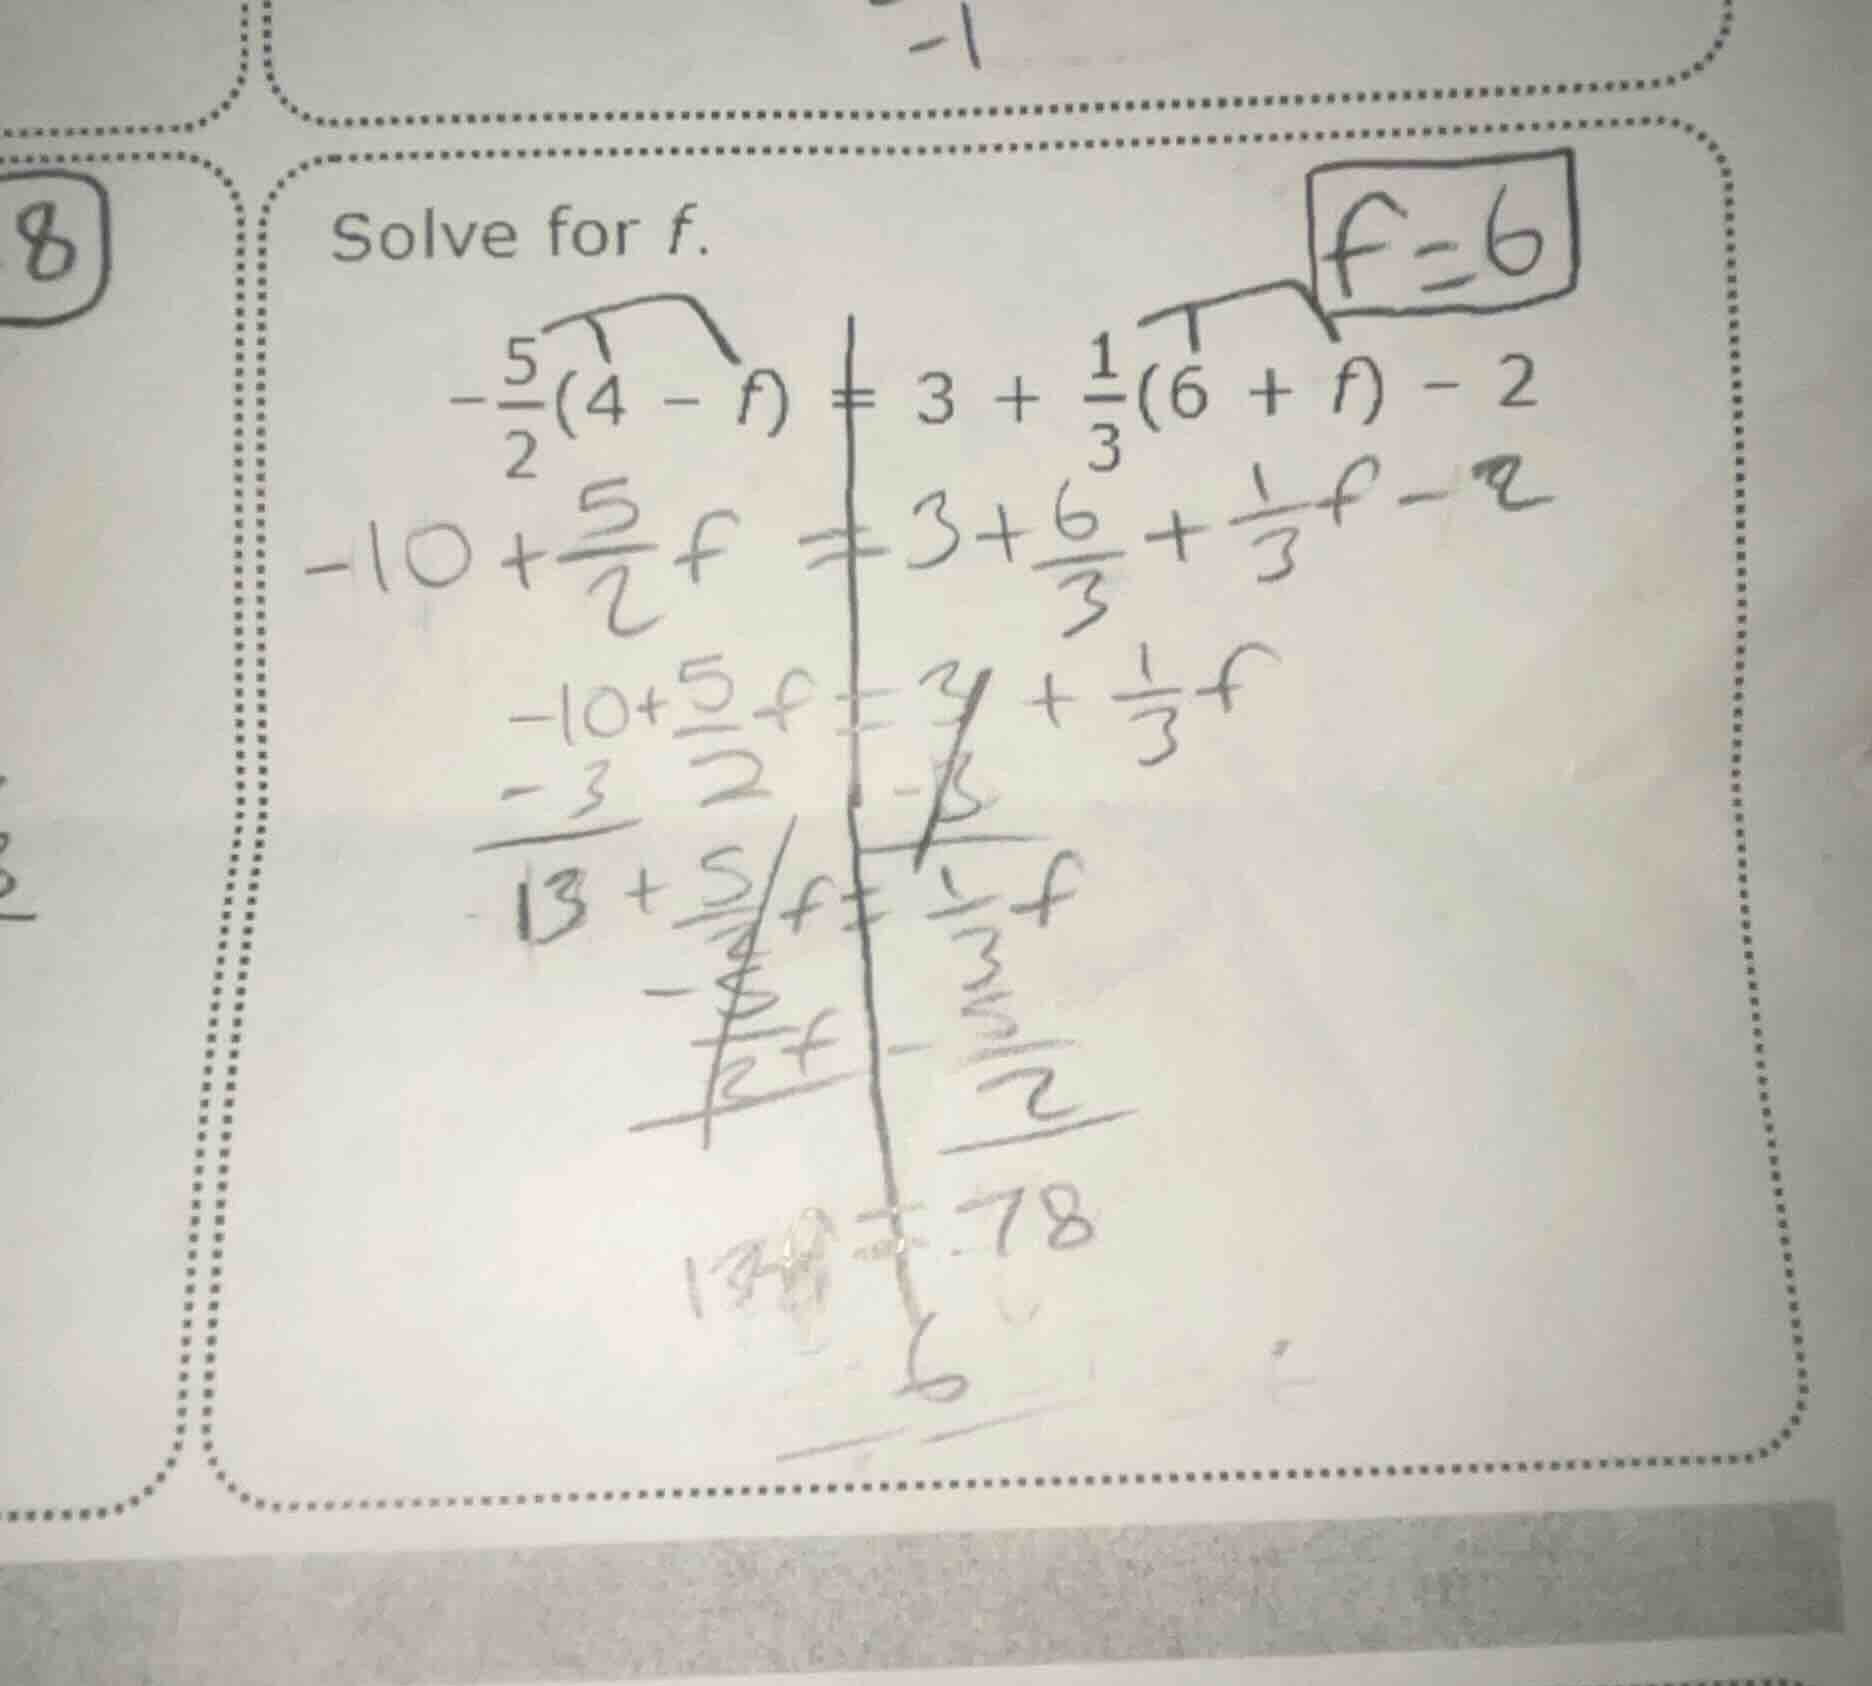 -1
8
Solve for f.
f=6
-5/2(4 - f) = 3 + 1/3(6 + f) - 2
-10 + 5/2 f = 3 + 6/3 + 1/3 f - 2
-10 + 5/2 f = 3 + 1/3 f
- 3 - 3
-13 + 5/2 f = 1/3 f
- 5/2 f - 5/2
= 78
6